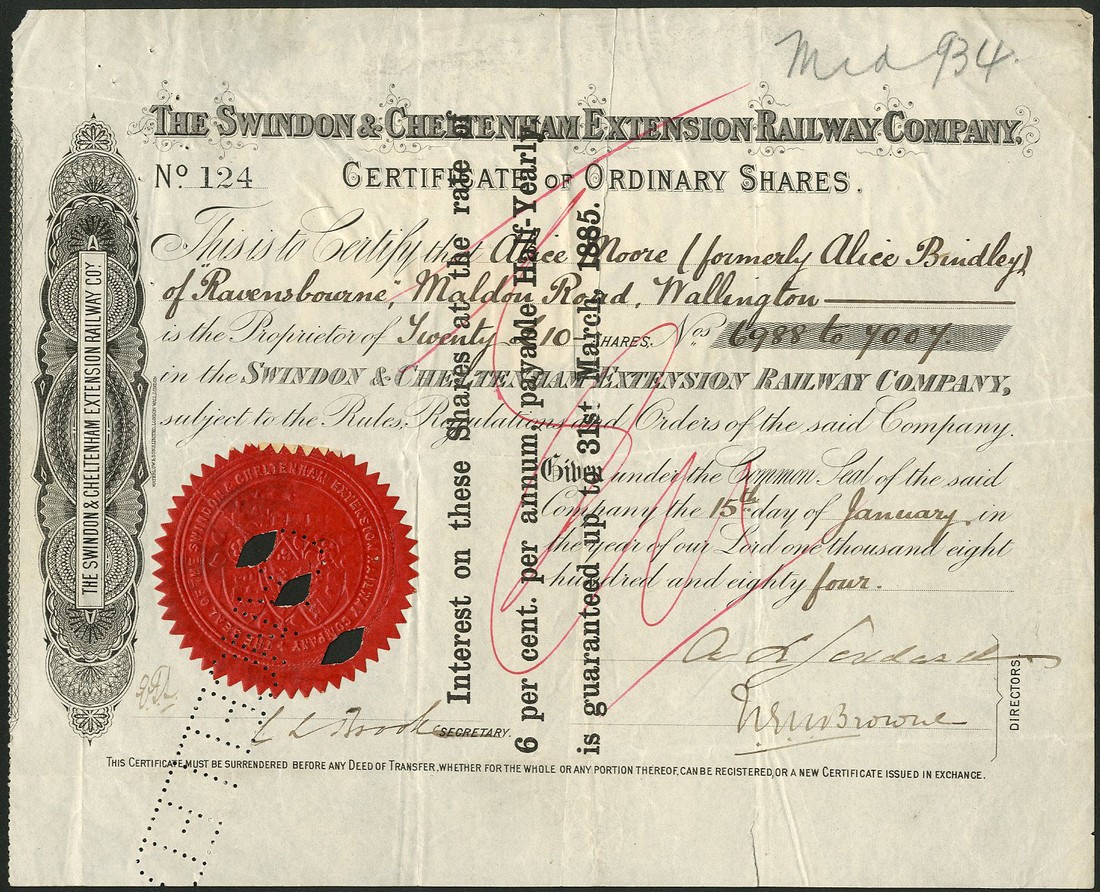 Mid 934.
THE SWINDON & CHELTENHAM EXTENSION RAILWAY COMPANY.
No. 124
CERTIFICATE OF ORDINARY SHARES.
This is to Certify that Alice Moore (formerly Alice Bindley)
of "Ravensbourne", Maldon Road, Wallington
is the Proprietor of Twenty £10 SHARES. Nos. 6988 to 7007.
in the SWINDON & CHELTENHAM EXTENSION RAILWAY COMPANY,
subject to the Rules, Regulations and Orders of the said Company.
Given under the Common Seal of the said
Company the 15th day of January in
the year of our Lord one thousand eight
hundred and eighty four.
Interest on these Shares at the rate of
6 per cent. per annum, payable Half-Yearly
is guaranteed up to 31st March, 1885.
THE SWINDON & CHELTENHAM EXTENSION RAILWAY COY.
THE SEAL OF THE SWINDON & CHELTENHAM EXTENSION RAILWAY COMPANY
SECRETARY.
Browne
DIRECTORS
THIS CERTIFICATE MUST BE SURRENDERED BEFORE ANY DEED OF TRANSFER, WHETHER FOR THE WHOLE OR ANY PORTION THEREOF, CAN BE REGISTERED, OR A NEW CERTIFICATE ISSUED IN EXCHANGE.